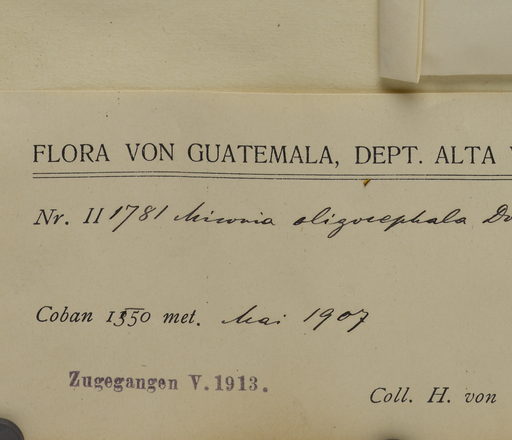 FLORA VON GUATEMALA, DEPT. ALTA
Nr. II 1781 Miconia oligocephala Do
Coban 1350 met. Mai 1907
Zugegangen V. 1913.
Coll. H. von